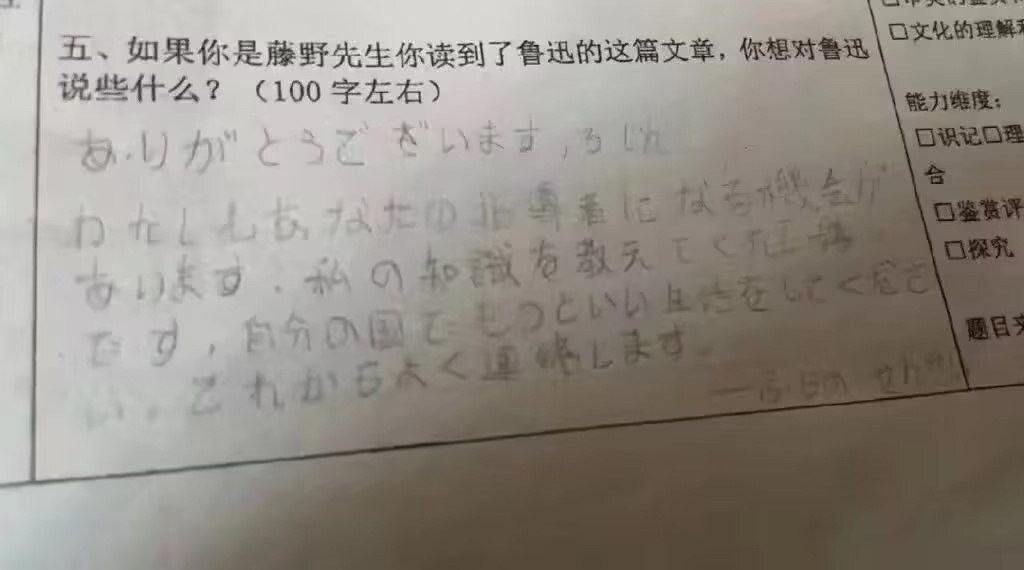 五、如果你是藤野先生你读到了鲁迅的这篇文章，你想对鲁迅
说些什么？（100字左右）
ありがとうございます，ろじん
わたしもあなたの指導者になる機会が
あります．私の知識を教えてくた
です，自分の国でもっといい生活をしてくださ
い．これからよく連絡します．
—ふじの せんせい
□文化的理解
能力维度：
□识记□理
合
□鉴赏评
□探究
题目